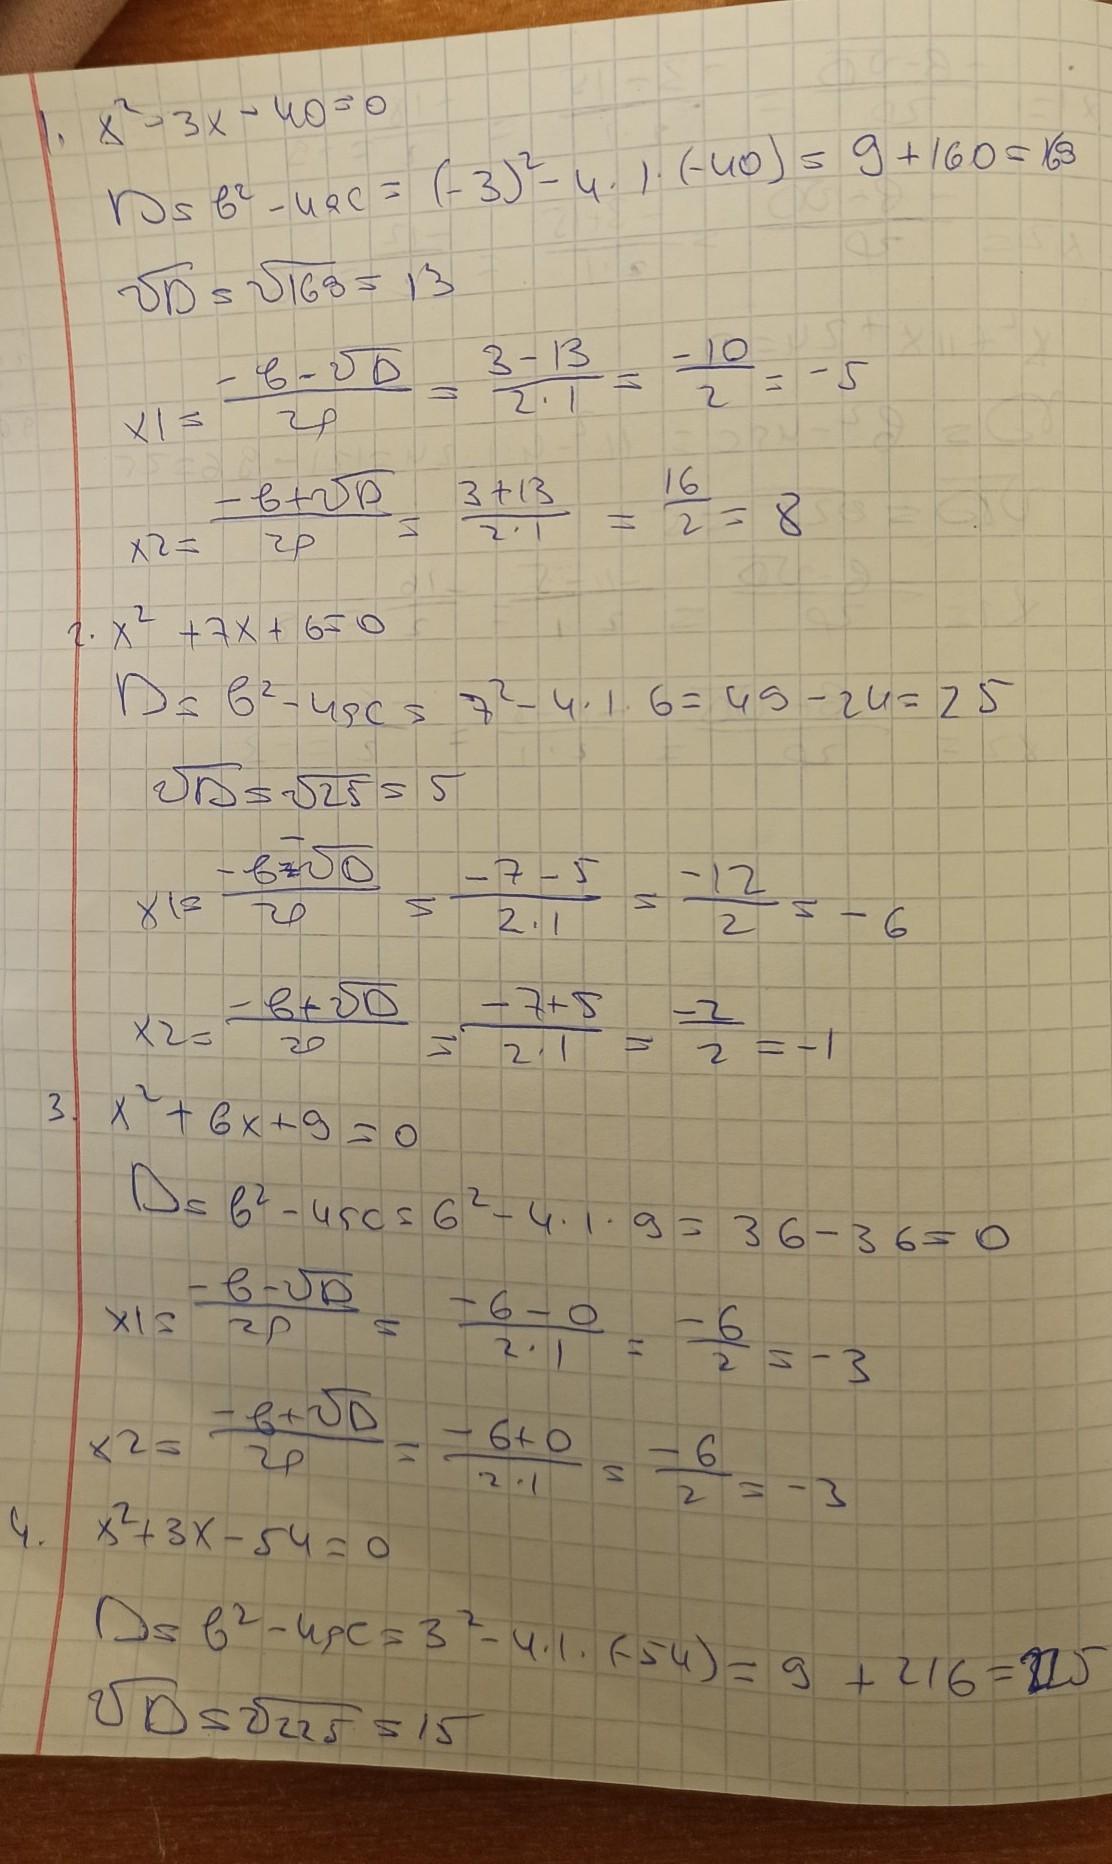 1. x² - 3x - 40 = 0
D = b² - 4ac = (-3)² - 4 · 1 · (-40) = 9 + 160 = 169
√D = √169 = 13
x1 = (-b - √D)/2a = (3 - 13)/(2 · 1) = -10/2 = -5
x2 = (-b + √D)/2a = (3 + 13)/(2 · 1) = 16/2 = 8
2. x² + 7x + 6 = 0
D = b² - 4ac = 7² - 4 · 1 · 6 = 49 - 24 = 25
√D = √25 = 5
x1 = (-b - √D)/2a = (-7 - 5)/(2 · 1) = -12/2 = -6
x2 = (-b + √D)/2a = (-7 + 5)/(2 · 1) = -2/2 = -1
3. x² + 6x + 9 = 0
D = b² - 4ac = 6² - 4 · 1 · 9 = 36 - 36 = 0
x1 = (-b - √D)/2a = (-6 - 0)/(2 · 1) = -6/2 = -3
x2 = (-b + √D)/2a = (-6 + 0)/(2 · 1) = -6/2 = -3
4. x² + 3x - 54 = 0
D = b² - 4ac = 3² - 4 · 1 · (-54) = 9 + 216 = 225
√D = √225 = 15